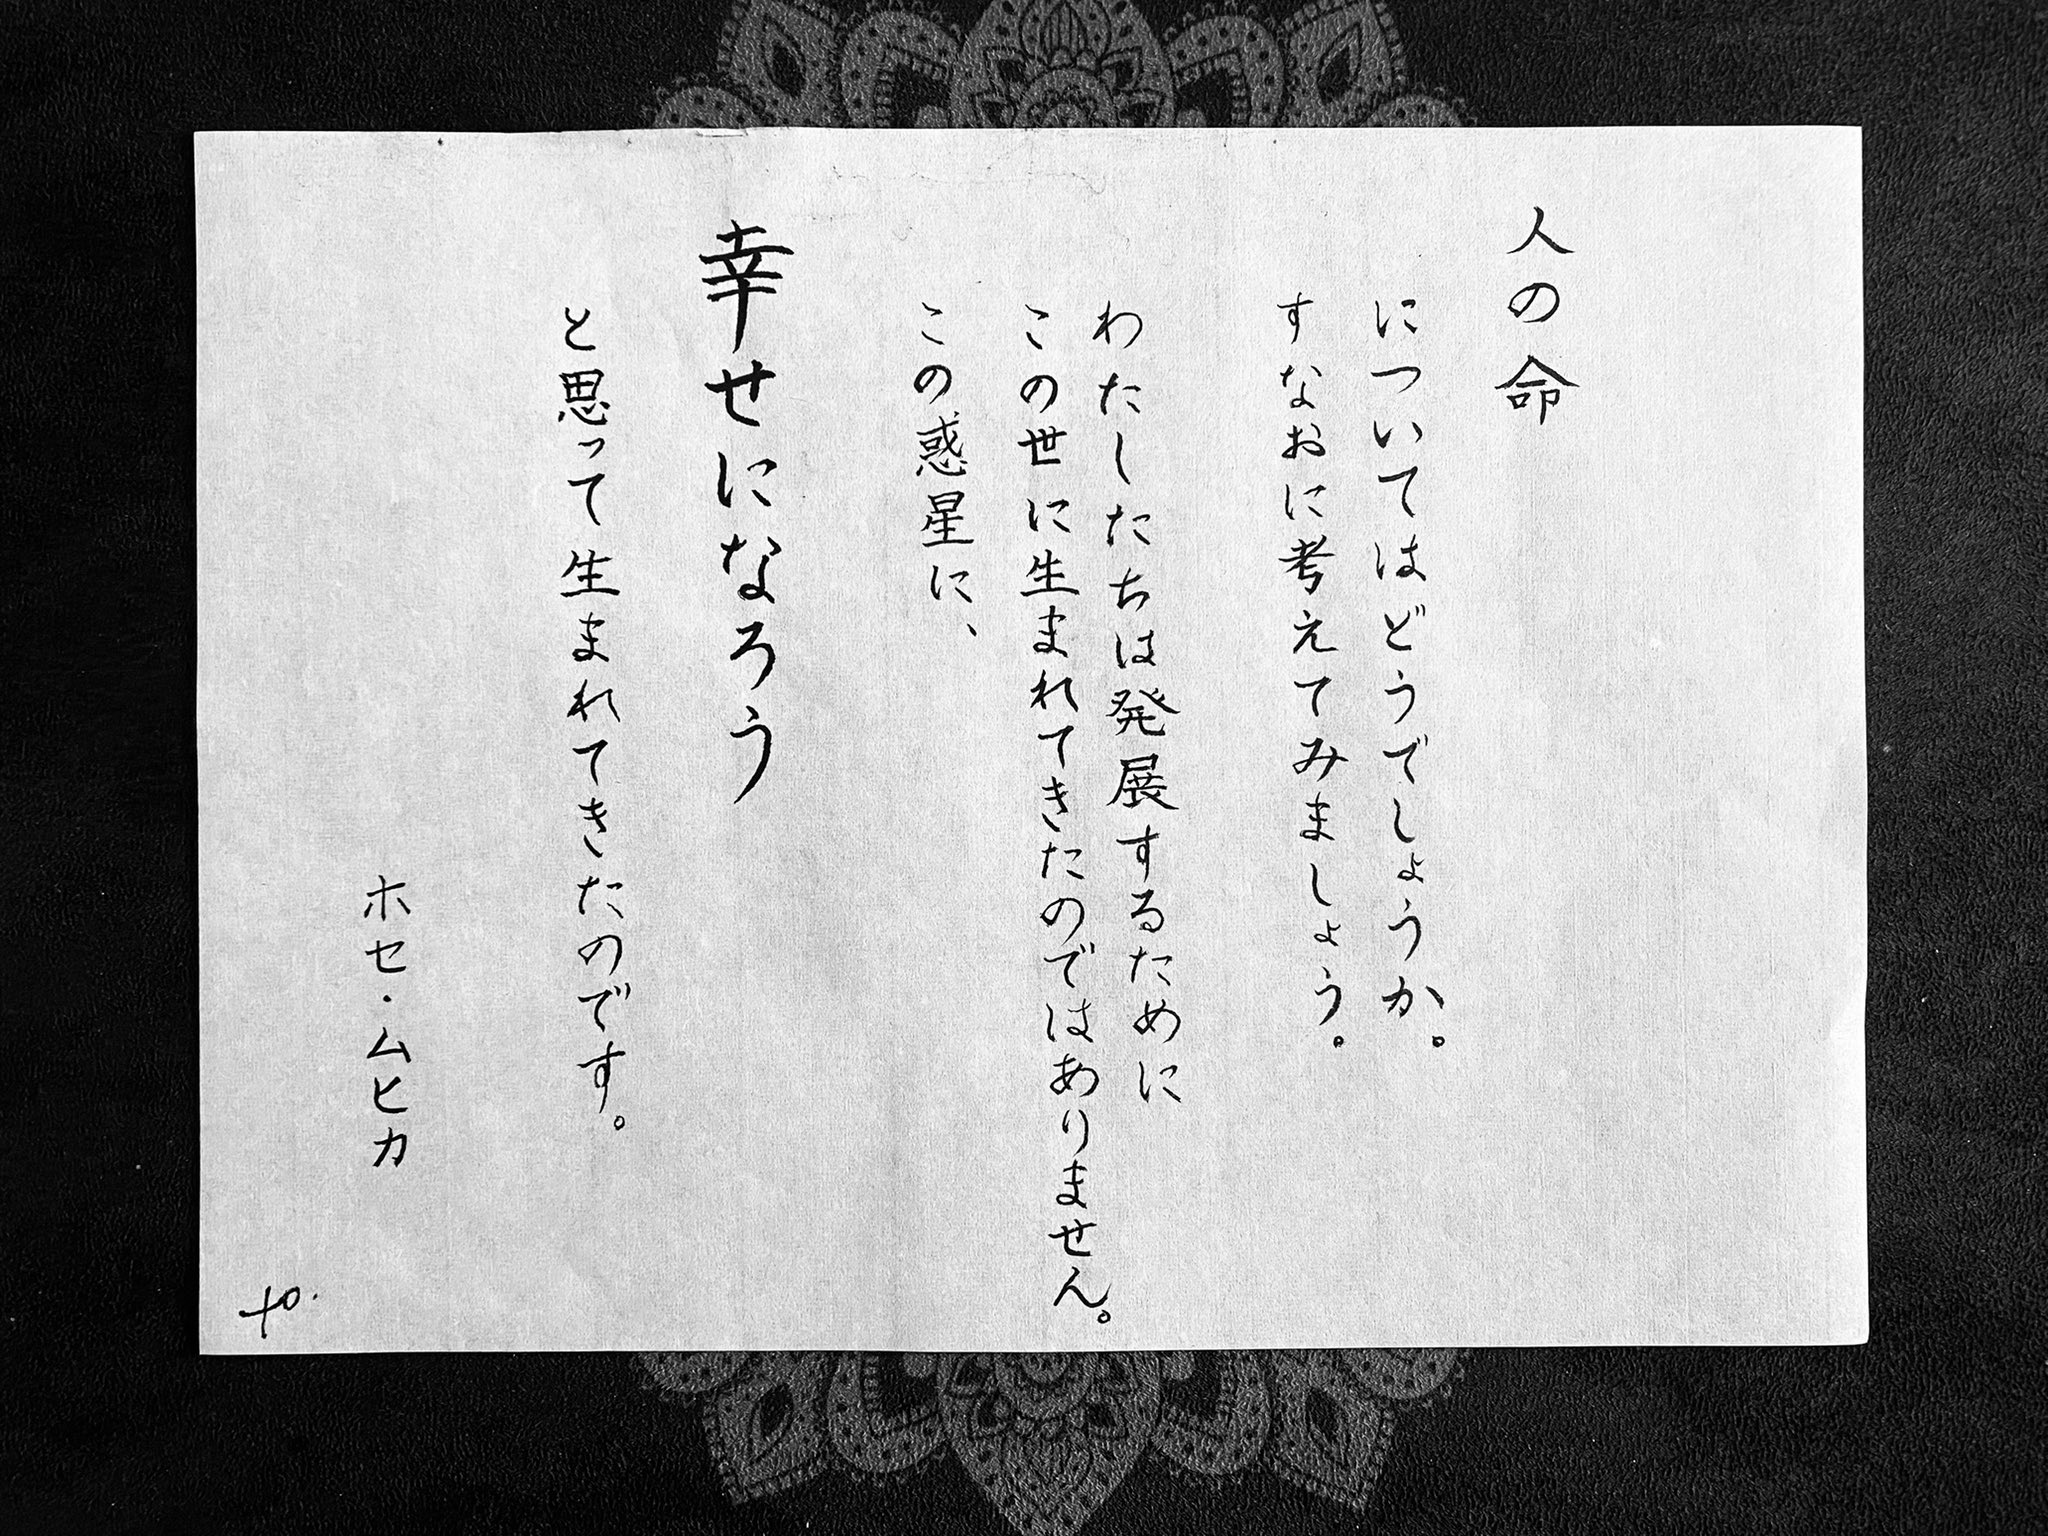 人の命
についてはどうでしょうか。
すなおに考えてみましょう。
わたしたちは発展するために
この世に生まれてきたのではありません。
この惑星に、
幸せになろう
と思って生まれてきたのです。
ホセ・ムヒカ